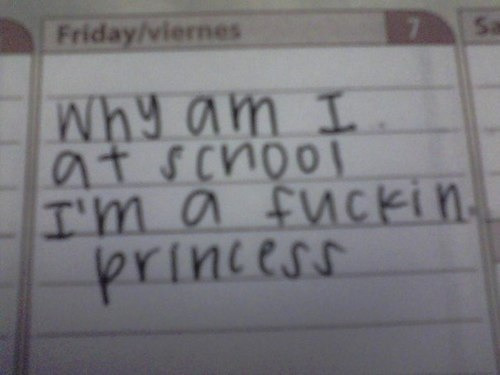 Friday/viernes 7 Sa
Why am I
at school
I'm a fuckin
princess